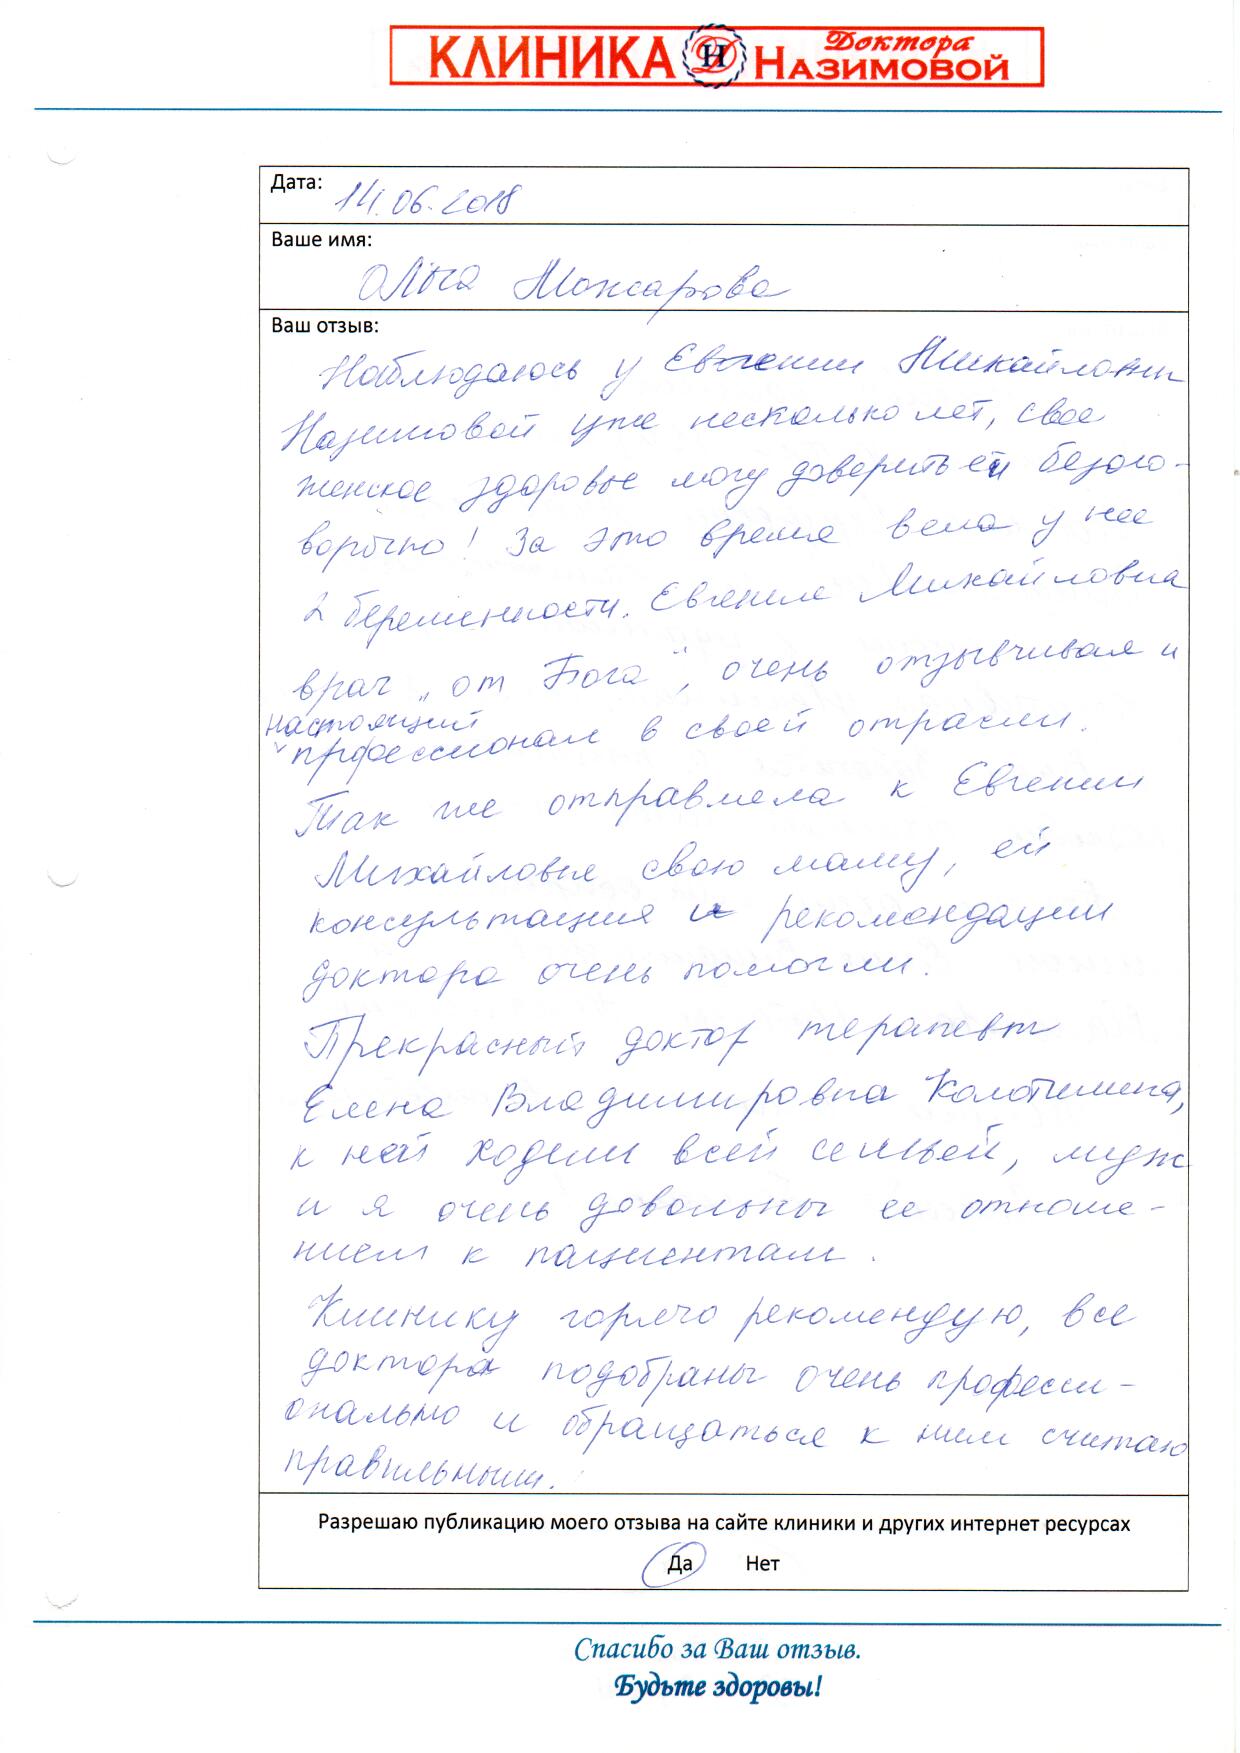 КЛИНИКА Доктора Назимовой
Дата: 14.06.2018
Ваше имя:
Ольга Можарова
Ваш отзыв:
Наблюдаюсь у Евгении Михайловны
Назимовой уже несколько лет, свое
женское здоровье могу доверить ей безого-
ворочно! За это время вела у нее
2 беременности. Евгения Михайловна
врач „от Бога", очень отзывчивая и
настоящий
профессионал в своей отрасли.
Так же отправляла к Евгении
Михайловне свою маму, ей
консультация и рекомендации
доктора очень помогли.
Прекрасный доктор терапевт
Елена Владимировна
к ней ходили всей семьей, муж
и я очень довольны ее отноше-
нием к пациентам.
Клинику горячо рекомендую, все
доктора подобраны очень професси-
онально и обращаться к ним считаю
правильным.
Разрешаю публикацию моего отзыва на сайте клиники и других интернет ресурсах
Да Нет
Спасибо за Ваш отзыв.
Будьте здоровы!